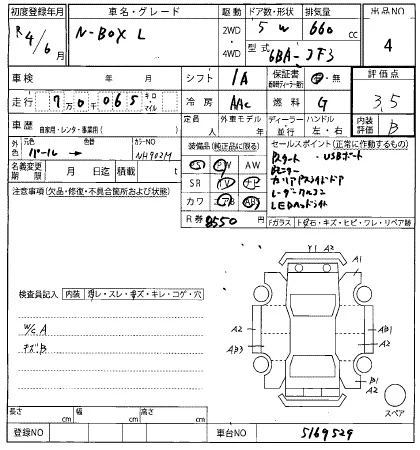 初度登録年月 車名・グレード 駆動 ドア数・形状 排気量 出品NO
R4/6月 N-BOX L 2WD 4WD 5W 660 cc 4
型式 6BA-JF3
車検 年 月 シフト IA 保証書 有・無 評価点
走行 7万0千065 キロ・マイル 冷房 AAC 燃料 G 3.5
車歴 自家用・レンタ・事業用( ) 定員 人 外車モデル 年 ディーラー 並行 ハンドル 左・右 内装評価 B
外色 元色 パール 色替 カラーNO NH902M 装備品(純正品に限る) セールスポイント(正常に作動するもの)
名義変更期限 月 日迄 積載 t PS PW AW
Pスタート ・USBポート
注意事項(欠品・修復・不具合箇所および状態) SR TV ナビ
カワ エアB ABS レーダークルコン
R券 8550 LEDヘッドライト
Fガラス ト石・キズ・ヒビ・ワレ・リペア跡
Y1 A2
A1
検査員記入 内装 コゲ・スレ・キズ・キレ・コゲ・穴
W/C A
キズB
A2
AB3
AB1
A2
B1
A2
スペア
長さ cm 幅 cm 高さ cm
登録NO 車台NO 5169529